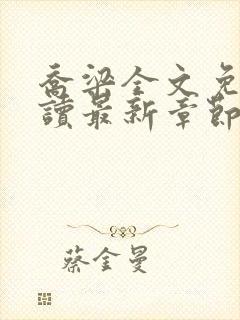 喬梁全文免
讀最新章節
蔡金曼